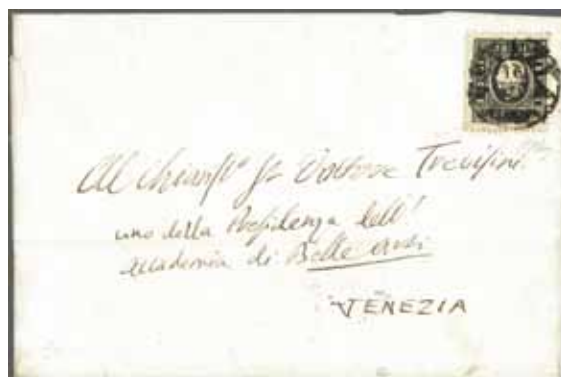 Al Chiariss° Sr Dottore Trevisini
uno della Presidenza dell'
Accademia di Belle Arti
VENEZIA